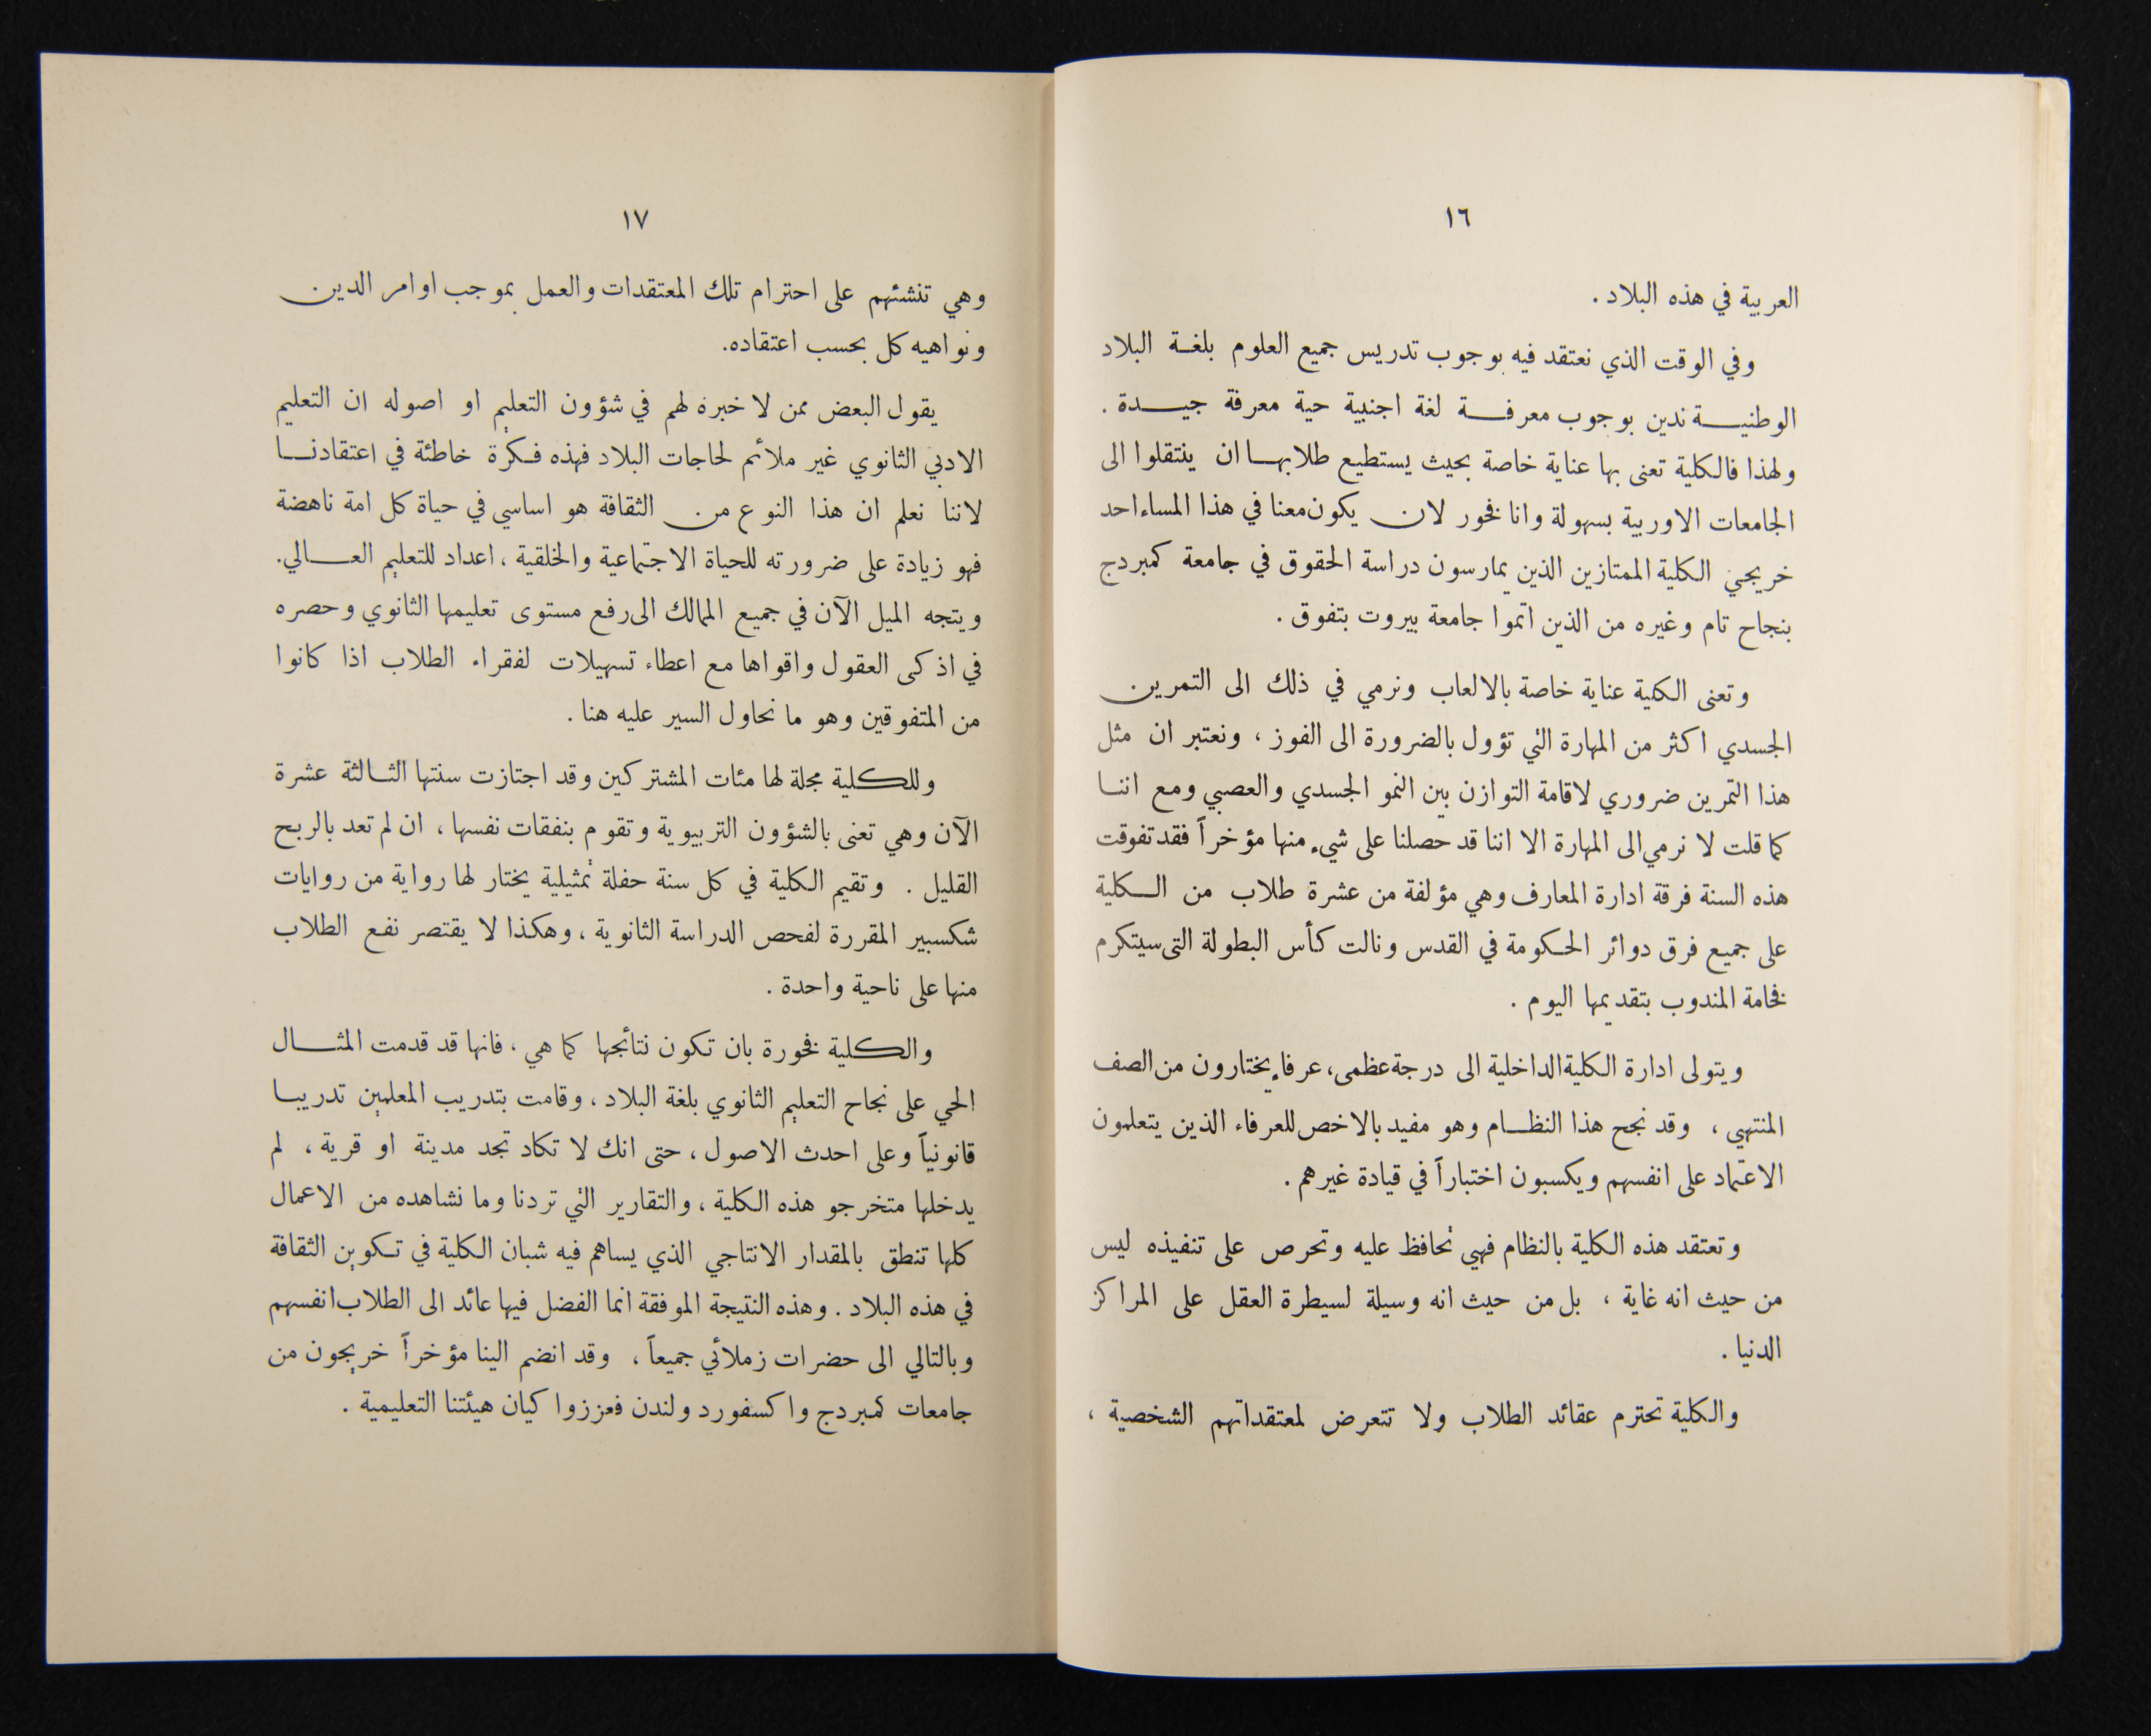 ١٦
العربية في هذه البلاد .
وفي الوقت الذي نعتقد فيه بوجوب تدريس جميع العلوم بلغة البلاد
الوطنية ندين بوجوب معرفة لغة اجنبية حية معرفة جيدة .
ولهذا فالكلية تعنى بها عناية خاصة بحيث يستطيع طلابها ان ينتقلوا الى
الجامعات الاوربية بسهولة وانا فخور لان يكون معنا في هذا المساء احد
خريجي الكلية الممتازين الذين يمارسون دراسة الحقوق في جامعة كمبردج
بنجاح تام وغيره من الذين اتموا جامعة بيروت بتفوق .
وتعنى الكلية عناية خاصة بالالعاب ونرمي في ذلك الى التمرين
الجسدي اكثر من المهارة التي تؤول بالضرورة الى الفوز ، ونعتبر ان مثل
هذا التمرين ضروري لاقامة التوازن بين النمو الجسدي والعصبي ومع اننا
كما قلت لا نرمي الى المهارة الا اننا قد حصلنا على شيء منها مؤخراً فقد تفوقت
هذه السنة فرقة ادارة المعارف وهي مؤلفة من عشرة طلاب من الكلية
على جميع فرق دوائر الحكومة في القدس ونالت كأس البطولة التى سيتكرم
فخامة المندوب بتقديمها اليوم .
ويتولى ادارة الكلية الداخلية الى درجة عظمى، عرفاء يختارون من الصف
المنتهي ، وقد نجح هذا النظام وهو مفيد بالاخص للعرفاء الذين يتعلمون
الاعتماد على انفسهم ويكسبون اختباراً في قيادة غيرهم .
وتعتقد هذه الكلية بالنظام فهي تحافظ عليه وتحرص على تنفيذه ليس
من حيث انه غاية ، بل من حيث انه وسيلة لسيطرة العقل على المراكز
الدنيا .
والكلية تحترم عقائد الطلاب ولا تتعرض لمعتقداتهم الشخصية ،
١٧
وهي تنشئهم على احترام تلك المعتقدات والعمل بموجب اوامر الدين
ونواهيه كل بحسب اعتقاده.
يقول البعض ممن لا خبرة لهم في شؤون التعليم او اصوله ان التعليم
الادبي الثانوي غير ملائم لحاجات البلاد فهذه فكرة خاطئة في اعتقادنا
لاننا نعلم ان هذا النوع من الثقافة هو اساسي في حياة كل امة ناهضة
فهو زيادة على ضرورته للحياة الاجتماعية والخلقية ، اعداد للتعليم العالي.
ويتجه الميل الآن في جميع الممالك الى رفع مستوى تعليمها الثانوي وحصره
في اذكى العقول واقواها مع اعطاء تسهيلات لفقراء الطلاب اذا كانوا
من المتفوقين وهو ما نحاول السير عليه هنا .
وللكلية مجلة لها مئات المشتركين وقد اجتازت سنتها الثالثة عشرة
الآن وهي تعنى بالشؤون التربيوية وتقوم بنفقات نفسها ، ان لم تعد بالربح
القليل . وتقيم الكلية في كل سنة حفلة تمثيلية يختار لها رواية من روايات
شكسبير المقررة لفحص الدراسة الثانوية ، وهكذا لا يقتصر نفع الطلاب
منها على ناحية واحدة .
والكلية فخورة بان تكون نتائجها كما هي ، فانها قد قدمت المثال
الحي على نجاح التعليم الثانوي بلغة البلاد ، وقامت بتدريب المعلمين تدريبا
قانونياً وعلى احدث الاصول ، حتى انك لا تكاد تجد مدينة او قرية ، لم
يدخلها متخرجو هذه الكلية ، والتقارير التي تردنا وما نشاهده من الاعمال
كلها تنطق بالمقدار الانتاجي الذي يساهم فيه شبان الكلية في تكوين الثقافة
في هذه البلاد . وهذه النتيجة الموفقة انما الفضل فيها عائد الى الطلاب انفسهم
وبالتالي الى حضرات زملائي جميعاً ، وقد انضم الينا مؤخراً خريجون من
جامعات كمبردج واكسفورد ولندن فعززوا كيان هيئتنا التعليمية .